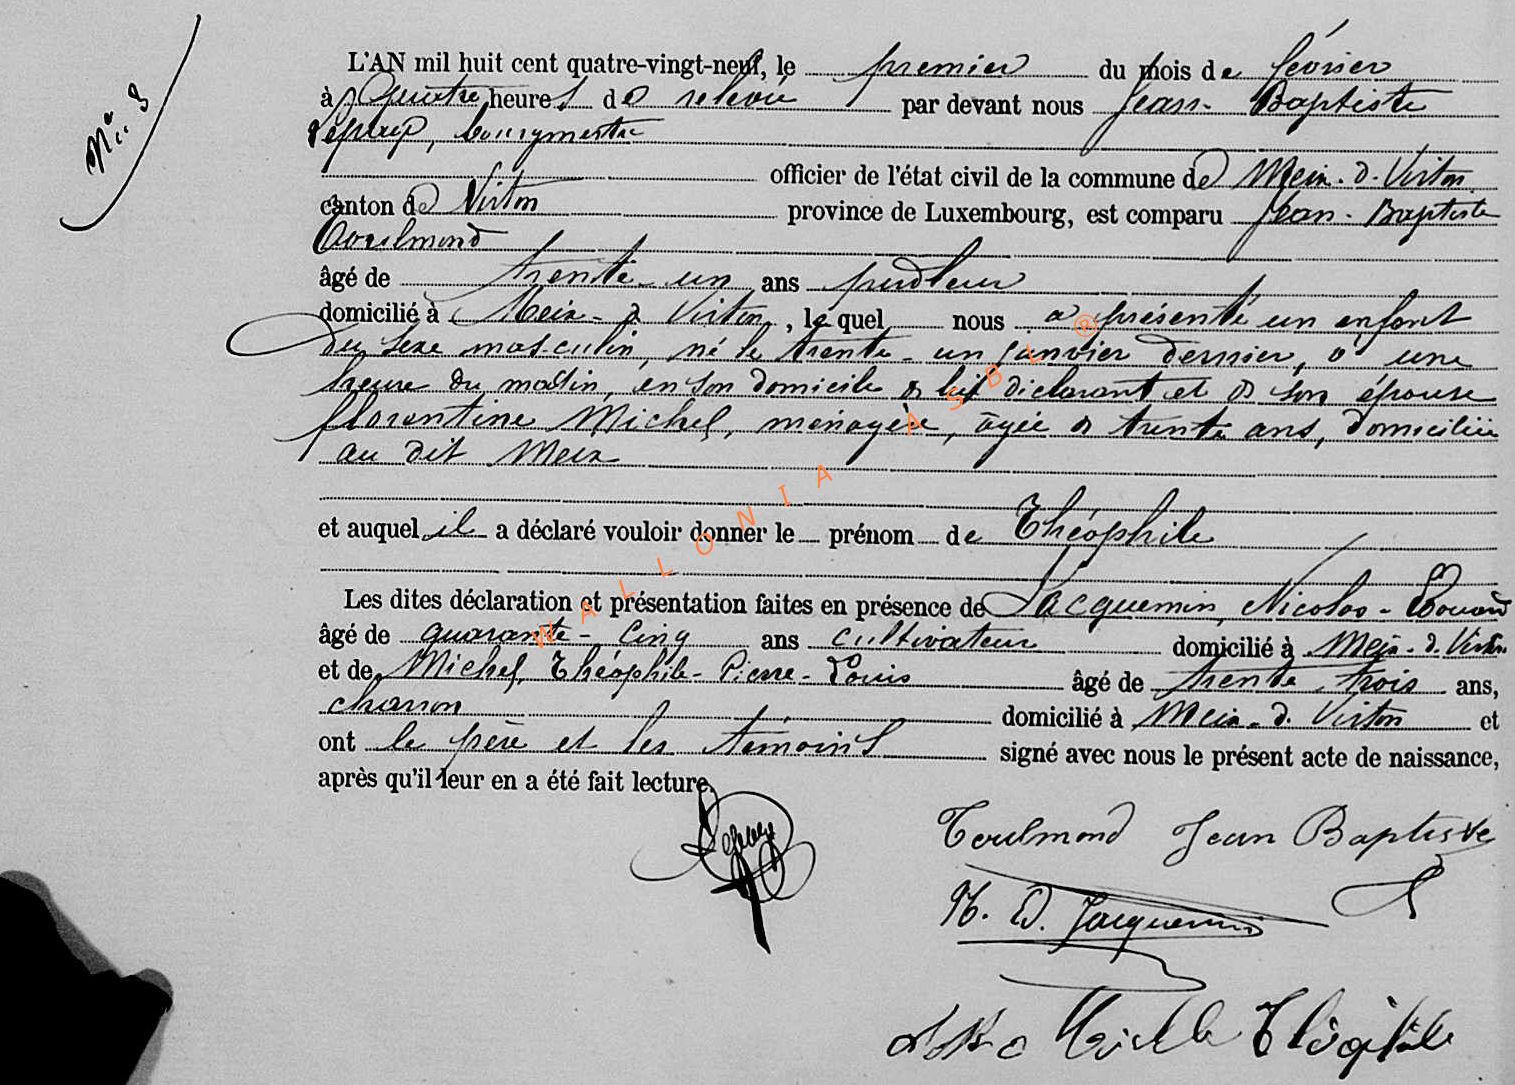 N° 3
L'AN mil huit cent quatre-vingt-neuf, le premier du mois de février
à quatre heures de relevée par devant nous Jean-Baptiste
bourgmestre
officier de l'état civil de la commune de Meix-d-Virton
canton de Virton province de Luxembourg, est comparu Jean-Baptiste
Toulmond
âgé de trente-un ans
domicilié à Meix-d Virton, le quel nous a présenté un enfant
du sexe masculin, né le trente-un janvier dernier, à une
heure du matin, en son domicile de lui déclarant et de son épouse
florentine Michel, ménagère, âgée de trente ans, domiciliée
au dit Meix
et auquel il a déclaré vouloir donner le prénom de Théophile
Les dites déclaration et présentation faites en présence de Jacquemin, Nicolas-Edouard
âgé de quarante-cinq ans cultivateur domicilié à Meix-d-Virton
et de Michel, Théophile-Pierre-Louis âgé de trente trois ans,
charron domicilié à Meix-d-Virton et
ont le père et les témoins signé avec nous le présent acte de naissance,
après qu'il leur en a été fait lecture.
Toulmond Jean Baptiste
N. E. Jacquemin
Théophile
WALLONIA ASBL ®